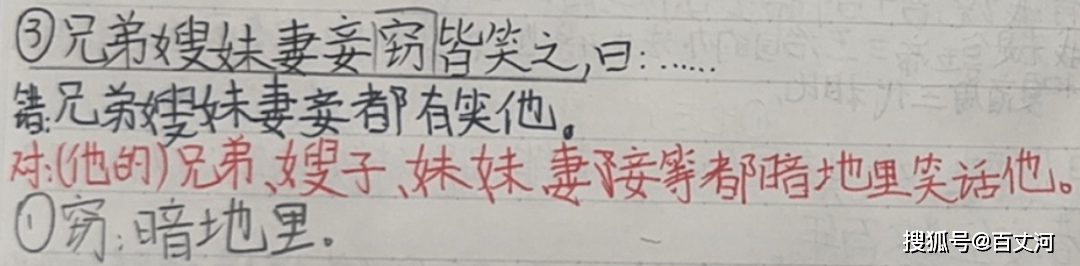 ③兄弟嫂妹妻妾窃皆笑之,曰:……
错:兄弟嫂妹妻妾都有笑他。
对:(他的)兄弟、嫂子、妹妹、妻妾等都暗地里笑话他。
①窃:暗地里。
搜狐号@百丈河